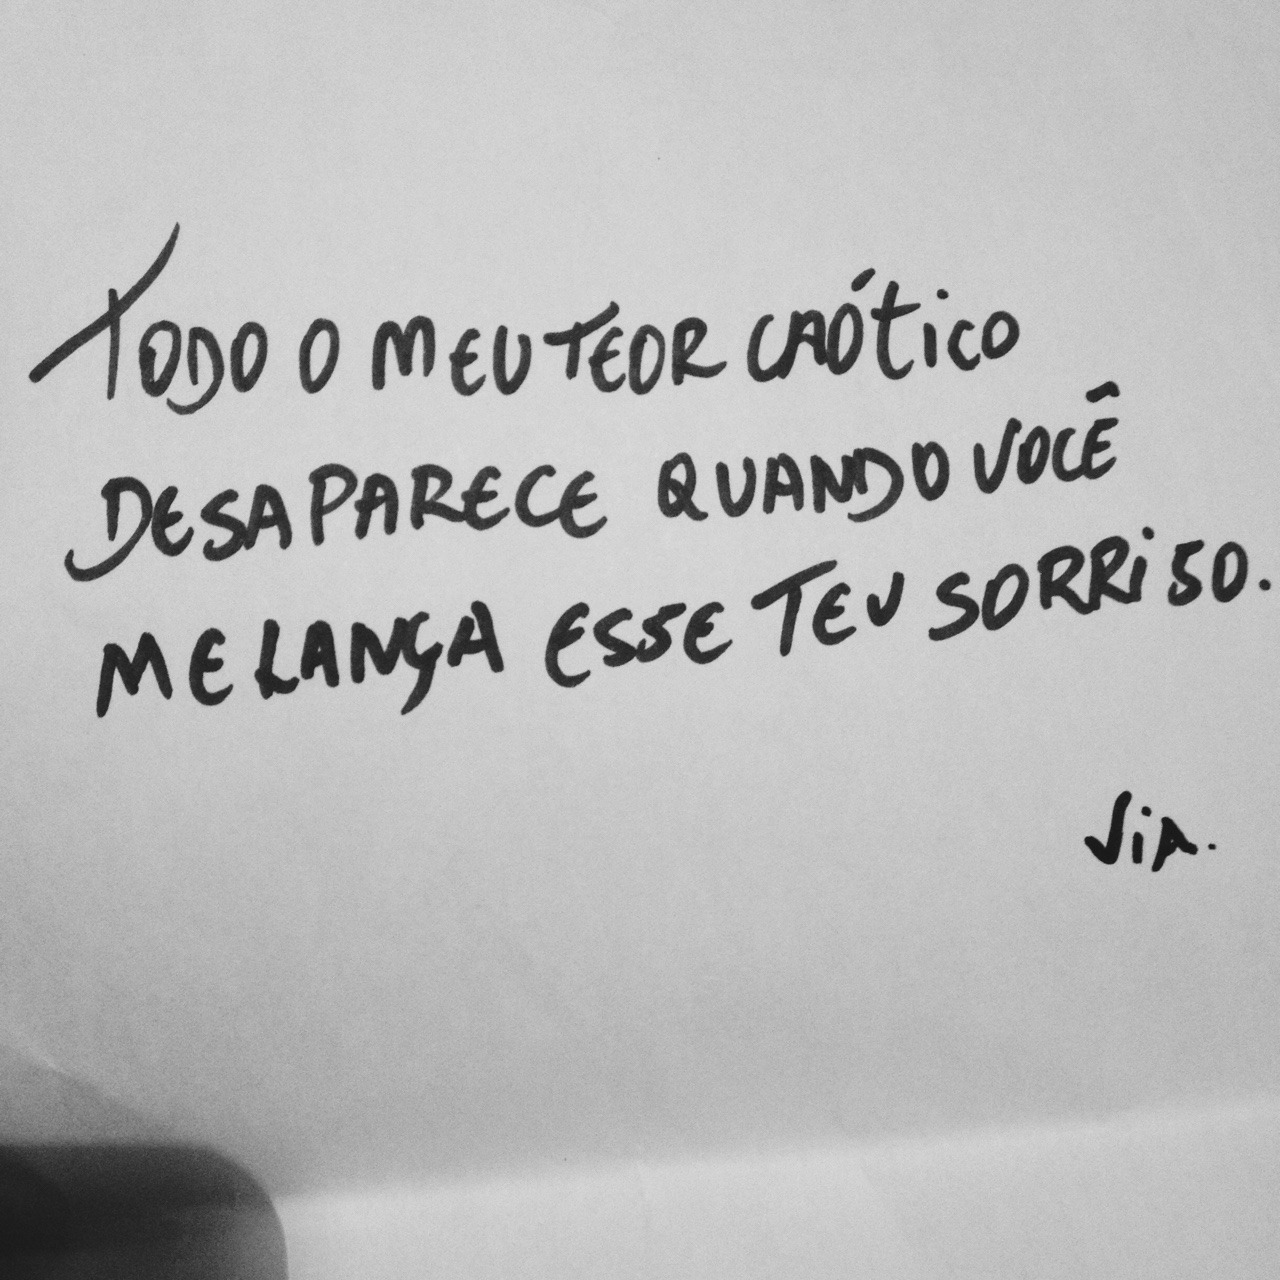 TODO O MEU TEOR CAÓTICO
DESAPARECE QUANDO VOCÊ
ME LANÇA ESSE TEU SORRISO.
Via.